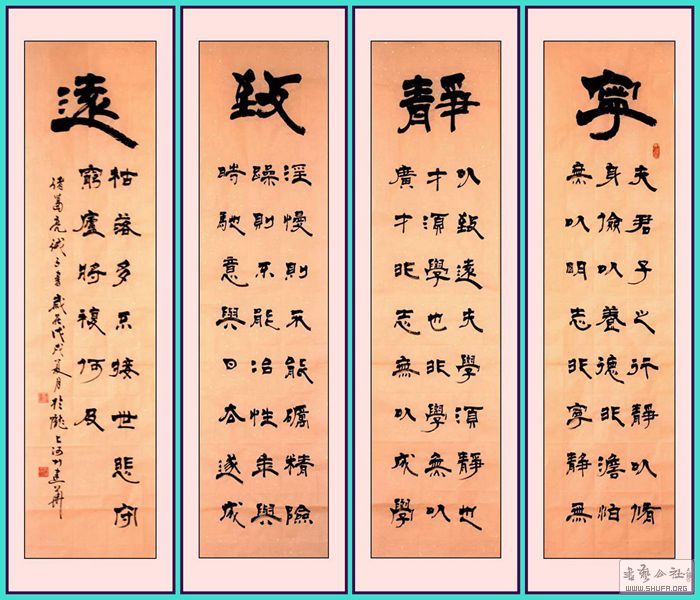 寧
夫君子之行靜以脩
身儉以養德非澹泊
無以明志非寧靜無
靜
以致遠夫學須靜也
才須學也非學無以
廣才非志無以成學
致
淫慢則不能礪精險
躁則不能冶性年與
時馳意與日去遂成
遠
枯落多不接世悲守
窮廬將複何及
諸葛亮誡子書歲在戊戌夏月於隴上河州建華
WWW.SHUFA.ORG